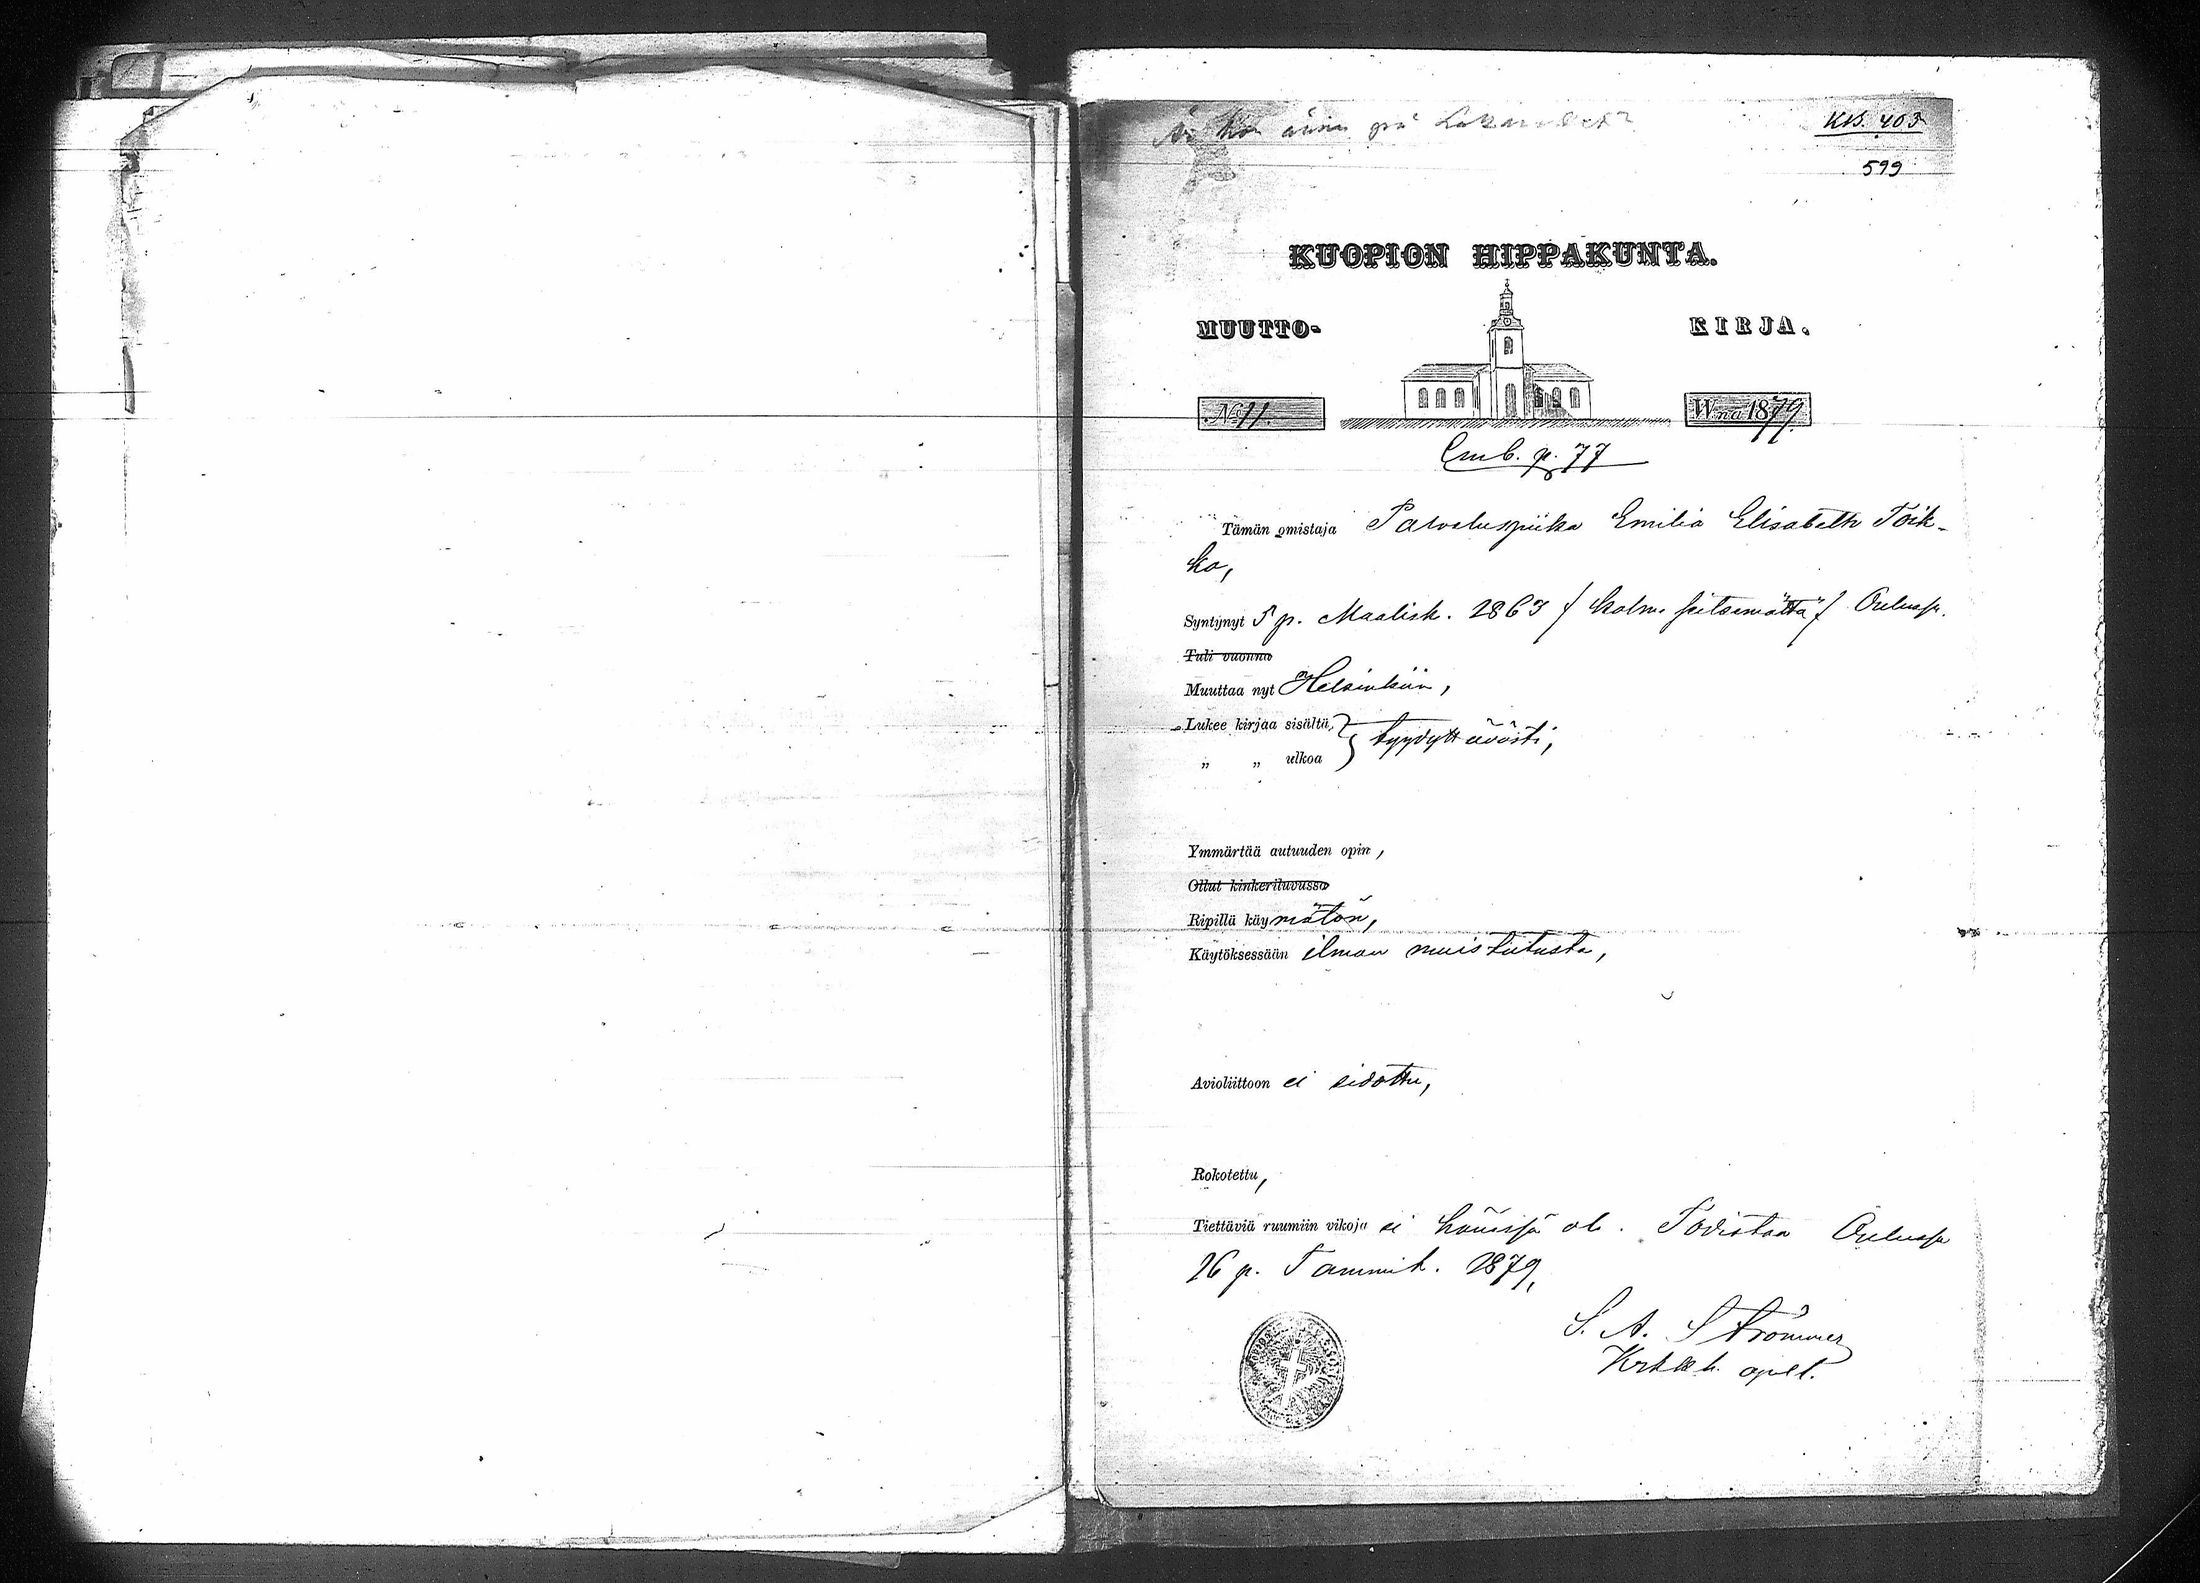 Är hon ännu på
KB. 403
599
KUOPION HIPPAKUNTA.
MUUTTO-
KIRJA.
No 11.
Wna 1879.
Omb. p. 77
Tämän omistaja Palveluspiika Emilia Elisabeth Toik-
ko,
Syntynyt 5 p. Maalisk. 1863 / kolme seitsemättä / Oulussa.
Tuli vuonna
Muuttaa nyt Helsinkiin,
Lukee kirjaa sisältä } tyydyttävästi,
„ „ ulkoa
Ymmärtää autuuden opin,
Ollut kinkeriluvussa
Ripillä käymätön,
Käytöksessään ilman muistutusta,
Avioliittoon ei sidottu,
Rokotettu,
Tiettäviä ruumiin vikoja ei hänessä ole. Todistaa Oulussa
16 p. Tammik. 1879,
S. A. Strömmer
apul.